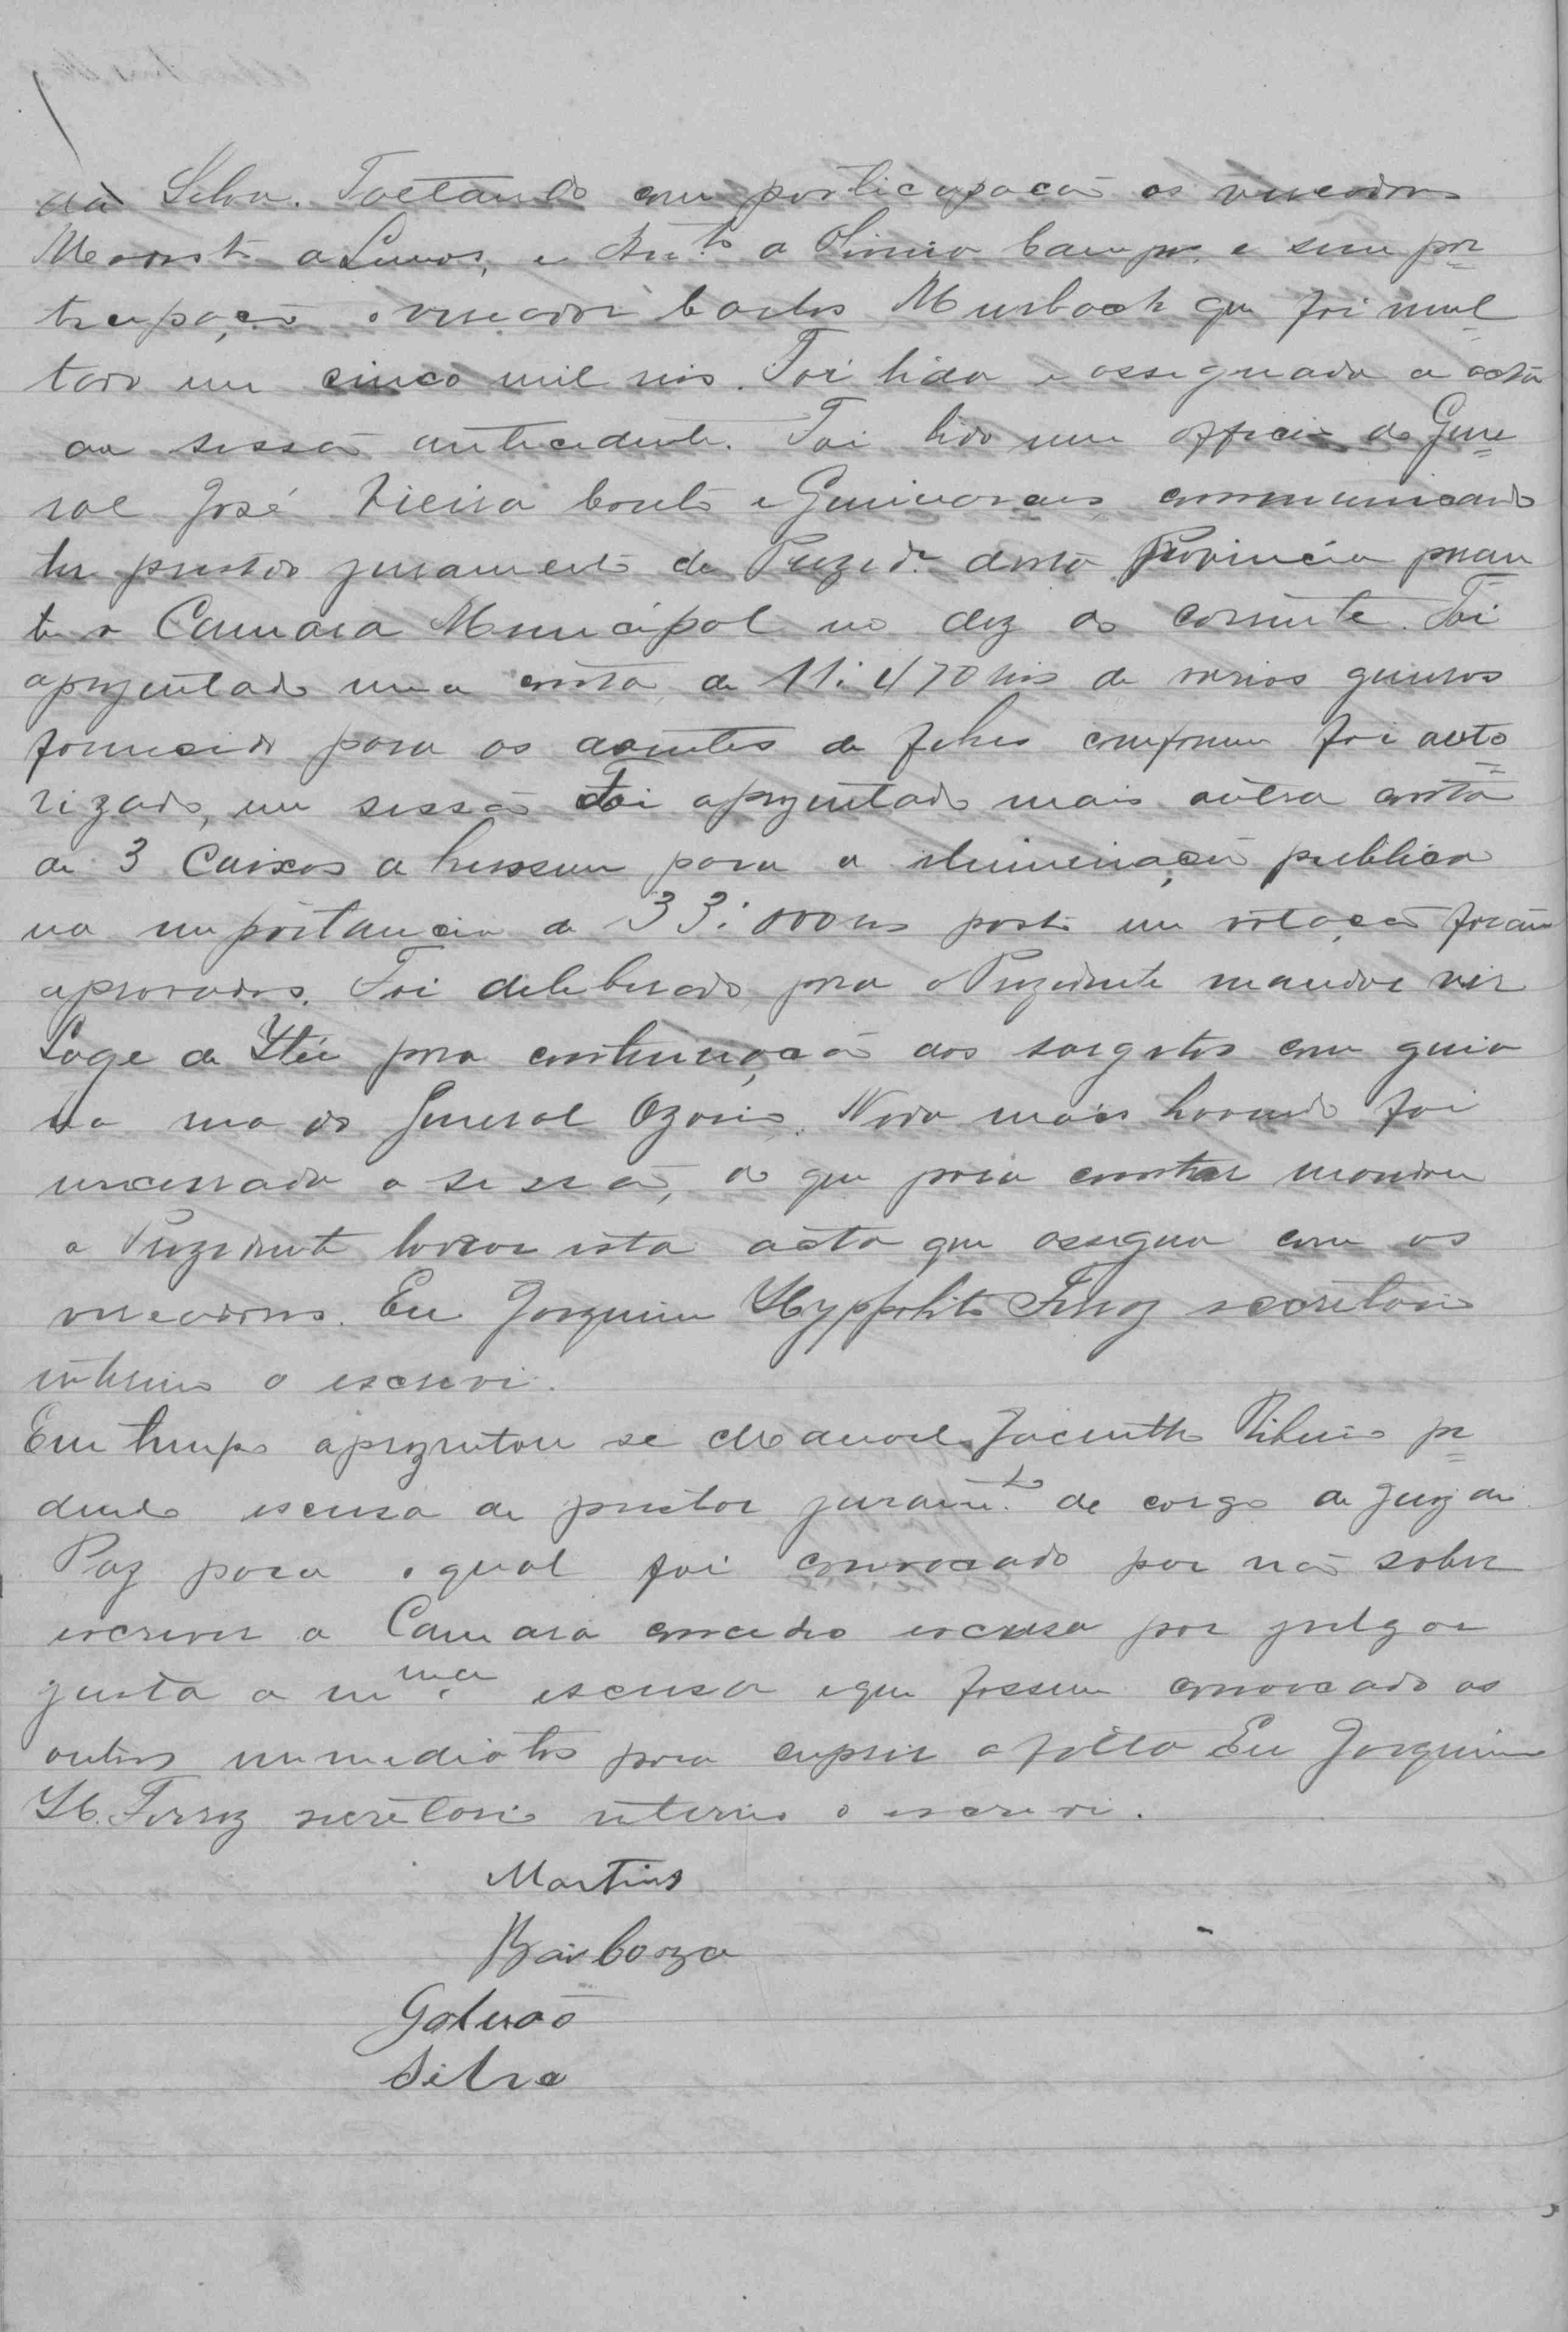 da Silva. Faltando com participação os vereadores
Modesto de Lemos, e Anto de Oliveira Campos e sem par=
ticipação o vereador Carlos Murbach que foi mul=
tado em cinco mil reis. Foi lida e assignada a acta
da sessão antecedente. Foi lido um officio do Gene=
ral José Vieira Couto e communicando
ter prestado juramento de Prezide desta Provincia peran
te a Camara Municipal no dez do corrente. Foi
aprezentado uma conta de 11:470 reis de varios generos
fornecido para os doentes de febres conforme foi auto=
rizado, em sessão Foi aprezentado mais outra conta
de 3 Caixas de kerosem para a iluminação publica
na importancia de 33:000 rs posto em votação forão
aprovados. Foi deliberado para o Prezidente mandar vir
Lage de Ytú para continuação das sargetas com guia
na rua do General Ozorio. Nada mais havendo foi
encerrada a sessão, do que para constar mandou
o Prezidente lavrar esta acta que assigna com os
vereadores. Eu Joaquim Hyppolito Ferraz secretario
interino o escrevi.
Em tempo aprezentou se Manoel Jacintho Ribeiro pe=
dindo escusa de prestar juramto de cargo de Juiz de
Paz para o qual foi convocado por não saber
escrever a Camara concedeo escusa por julgar
justa a mma escusa e que fossem convocado os
outros immediatos para suprir a falta Eu Joaquim
H. Ferraz secretario interino o escrevi.
Martins
Barboza
Galvão
Silva